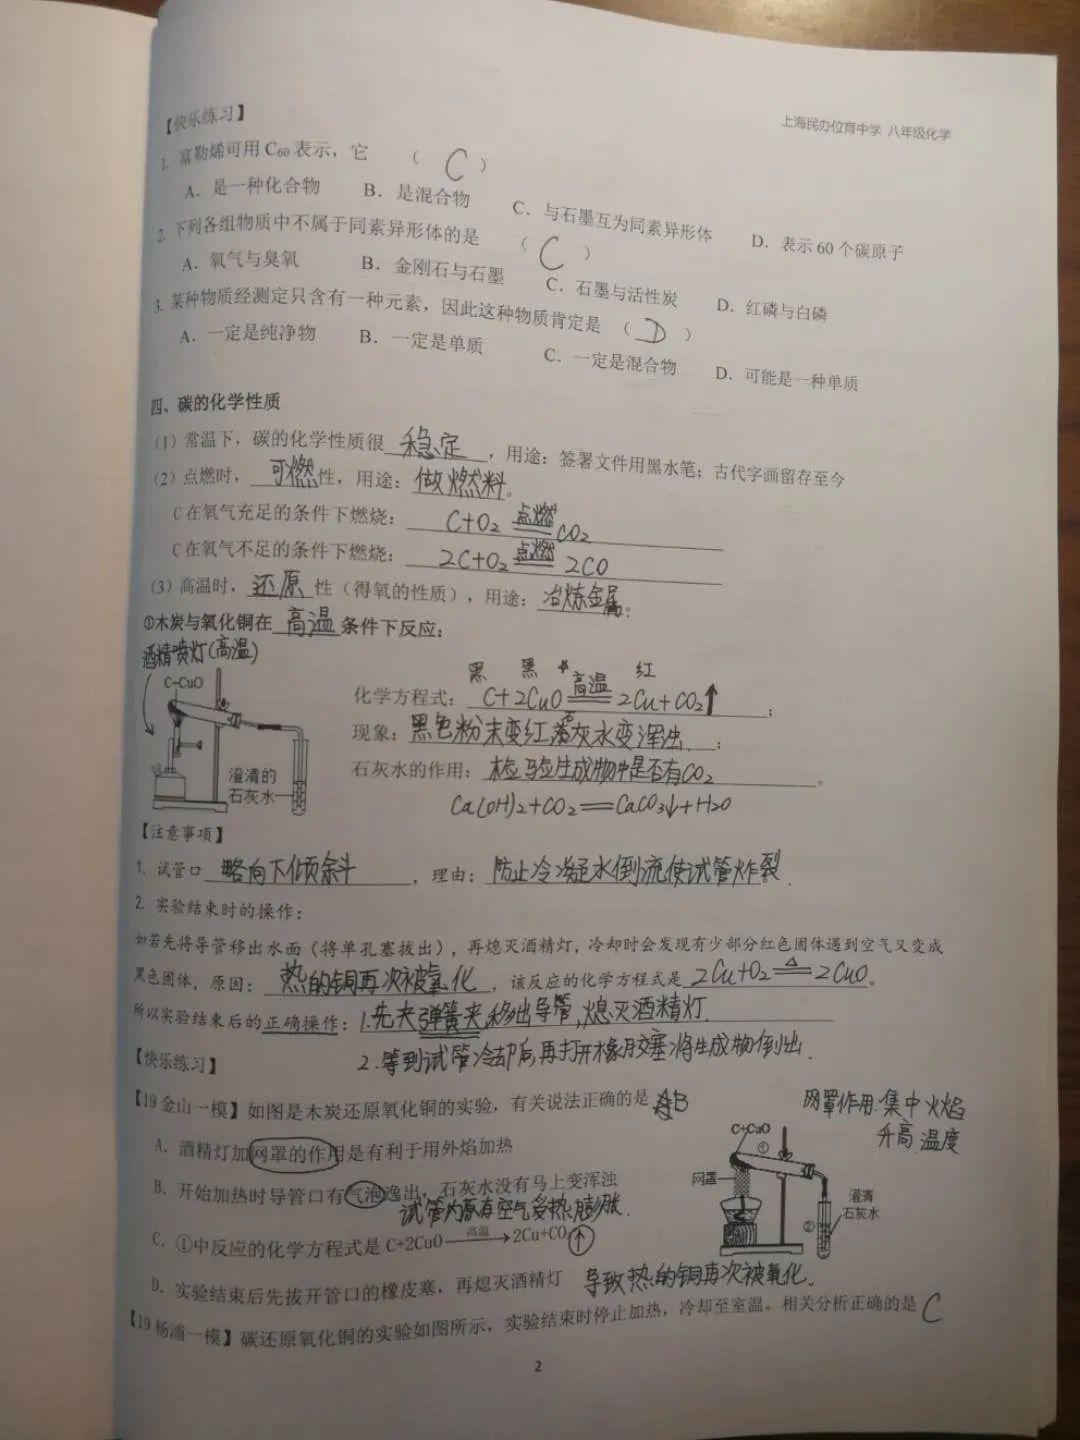 上海民办位育中学 八年级化学
【快乐练习】
1. 富勒烯可用 C₆₀ 表示，它 （ C ）
A．是一种化合物 B．是混合物 C．与石墨互为同素异形体 D．表示 60 个碳原子
2. 下列各组物质中不属于同素异形体的是 （ C ）
A．氧气与臭氧 B．金刚石与石墨 C．石墨与活性炭 D．红磷与白磷
3. 某种物质经测定只含有一种元素，因此这种物质肯定是 （ D ）
A．一定是纯净物 B．一定是单质 C．一定是混合物 D．可能是一种单质
四、碳的化学性质
（1）常温下，碳的化学性质很 稳定 ，用途：签署文件用黑水笔；古代字画留存至今
（2）点燃时， 可燃 性，用途： 做燃料 。
C 在氧气充足的条件下燃烧： C+O₂ 点燃 CO₂
C 在氧气不足的条件下燃烧： 2C+O₂ 点燃 2CO
（3）高温时， 还原 性（得氧的性质），用途： 冶炼金属 ；
①木炭与氧化铜在 高温 条件下反应；
酒精喷灯(高温)
C+CuO
黑 黑 红
化学方程式： C+2CuO 高温 2Cu+CO₂↑ ；
现象： 黑色粉末变红，石灰水变浑浊 ；
澄清的
石灰水
石灰水的作用： 检验生成物中是否有CO₂ 。
Ca(OH)₂+CO₂══CaCO₃↓+H₂O
【注意事项】
1. 试管口 略向下倾斜 ，理由： 防止冷凝水倒流使试管炸裂.
2. 实验结束时的操作：
如若先将导管移出水面（将单孔塞拔出），再熄灭酒精灯，冷却时会发现有少部分红色固体遇到空气又变成
黑色固体，原因： 热的铜再次被氧化 ，该反应的化学方程式是 2Cu+O₂ △ 2CuO 。
所以实验结束后的正确操作：1.先夹弹簧夹移出导管,熄灭酒精灯.
2.等到试管冷却后再打开橡胶塞将生成物倒出.
【快乐练习】
【19 金山一模】如图是木炭还原氧化铜的实验，有关说法正确的是 B
网罩作用:集中火焰
升高温度
A．酒精灯加网罩的作用是有利于用外焰加热
B．开始加热时导管口有气泡逸出，石灰水没有马上变浑浊
试管内原有空气受热膨胀.
C．①中反应的化学方程式是 C+2CuO 高温→ 2Cu+CO₂↑
D．实验结束后先拔开管口的橡皮塞，再熄灭酒精灯 导致热的铜再次被氧化.
C+CuO
①
网罩
②
澄清
石灰水
【19 杨浦一模】碳还原氧化铜的实验如图所示，实验结束时停止加热，冷却至室温。相关分析正确的是 C
2